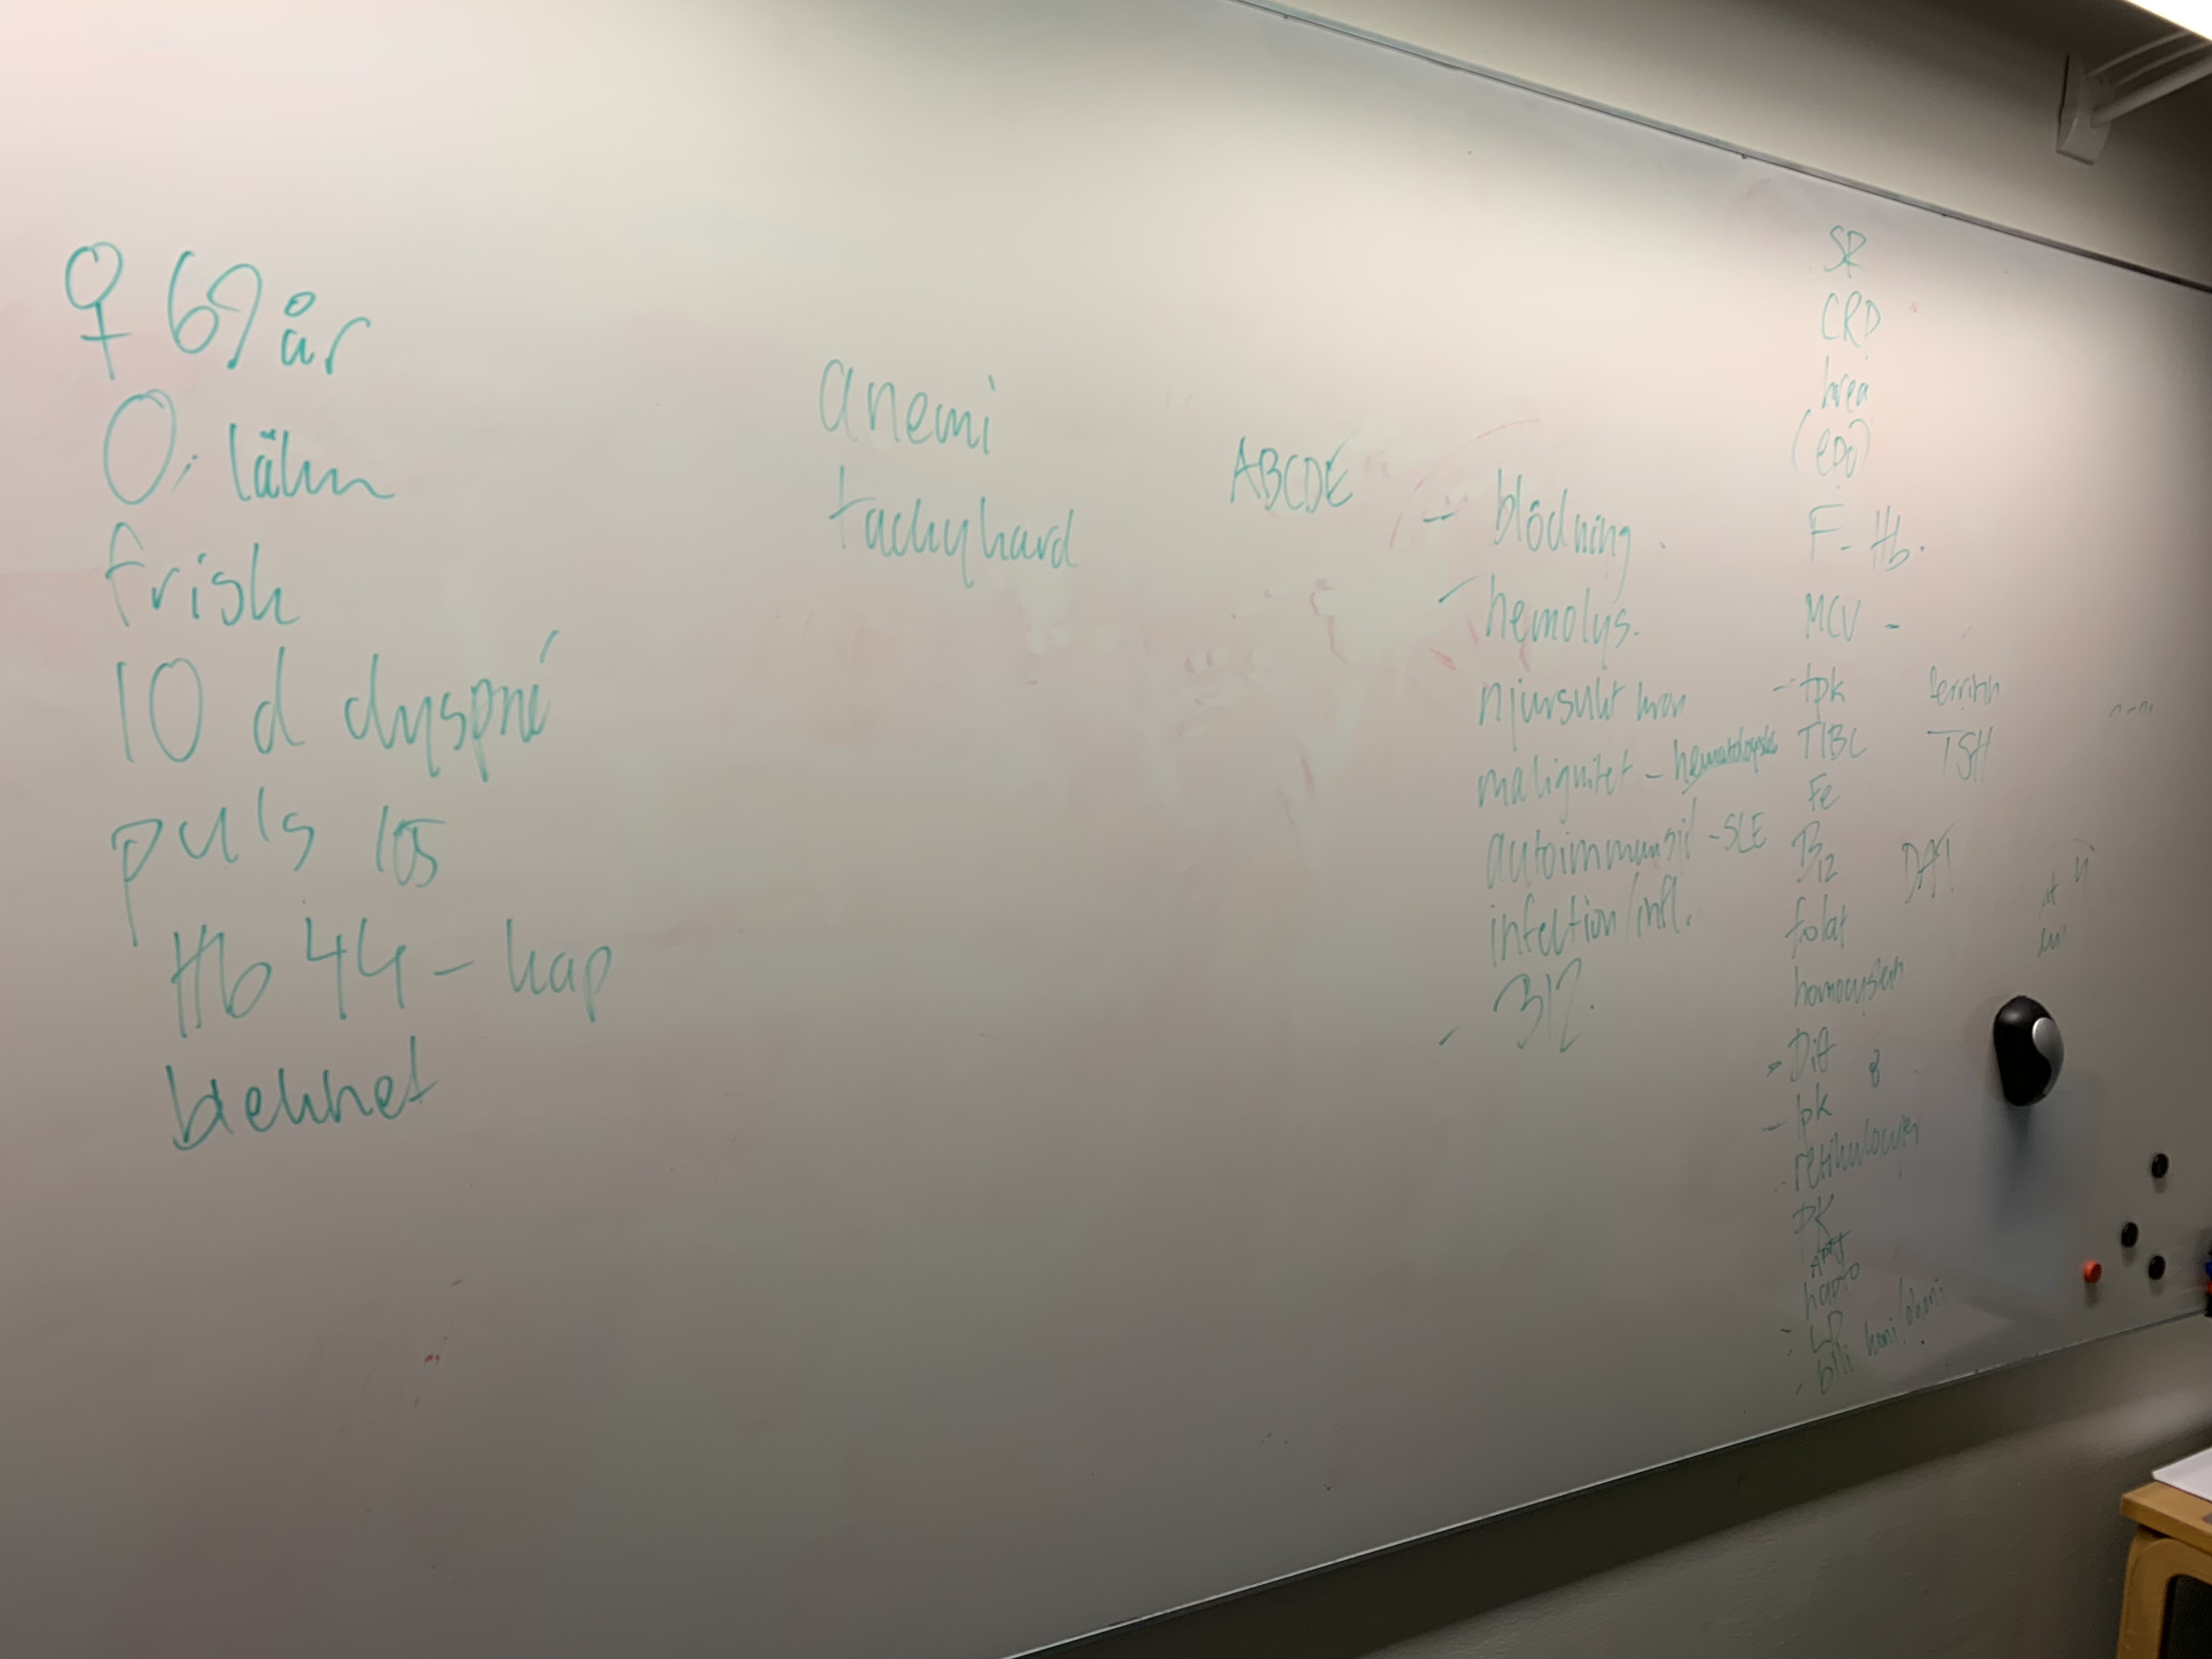 ♀ 69 år
0; läkm
frisk
10 d dyspné
puls 105
Hb 44 - kap
blekhet
anemi
tachykard
ABCDE
- blödning.
- hemolys.
njursvikt kron
malignitet - hematologisk
autoimmunsjd - SLE
infektion/infl.
- B12.
SR
CRP
krea
(epo)
F-Hb.
MCV -
- tpk ferritin
TIBC TSH
Fe
B12 DAT
folat
homocystein
- Diff 8
- lpk
- retikulocyter
PK
APTT
hapto
- LD
- bili konj/okonj